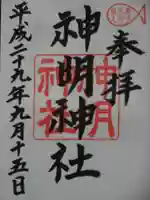 奉拝
神明神社
平成二十九年九月十五日